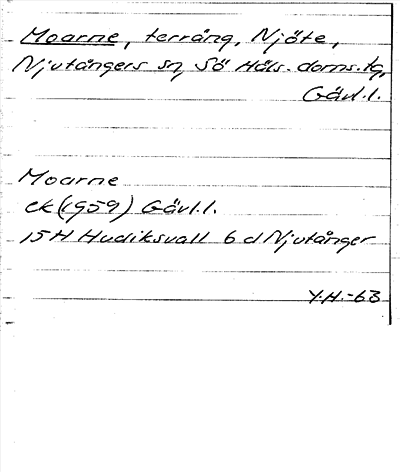 Moarne, terräng, Njöte,
Njutångers sn, Sö Häls. doms. tg,
Gävl.l.
Moarne
ek (1959) Gävl.l.
15H Hudiksvall 6 d Njutånger
Y.H.-63